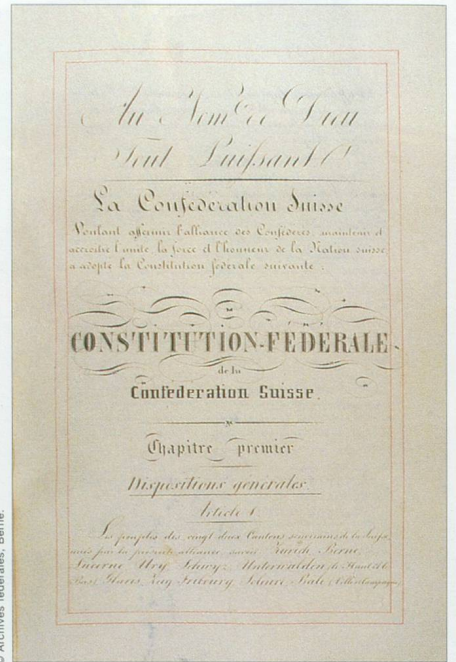 Au Nom de Dieu
Tout Puissant!
La Confédération Suisse
Voulant affermir l'alliance des Confédérés; maintenir et
accroître l'unité, la force et l'honneur de la Nation suisse,
a adopté la Constitution fédérale suivante:
CONSTITUTION-FÉDÉRALE
de la
Confédération Suisse.
Chapitre premier
Dispositions générales.
Article 1.
Les peuples des vingt deux Cantons souverains de la Suisse,
unis par la présente alliance, savoir: Zurich, Berne,
Lucerne Ury, Schwyz, Unterwalden, le Haut et le
Bas, Glaris, Zug Fribourg Soleure Bâle, Ville et Campagne
© Archives fédérales, Berne.